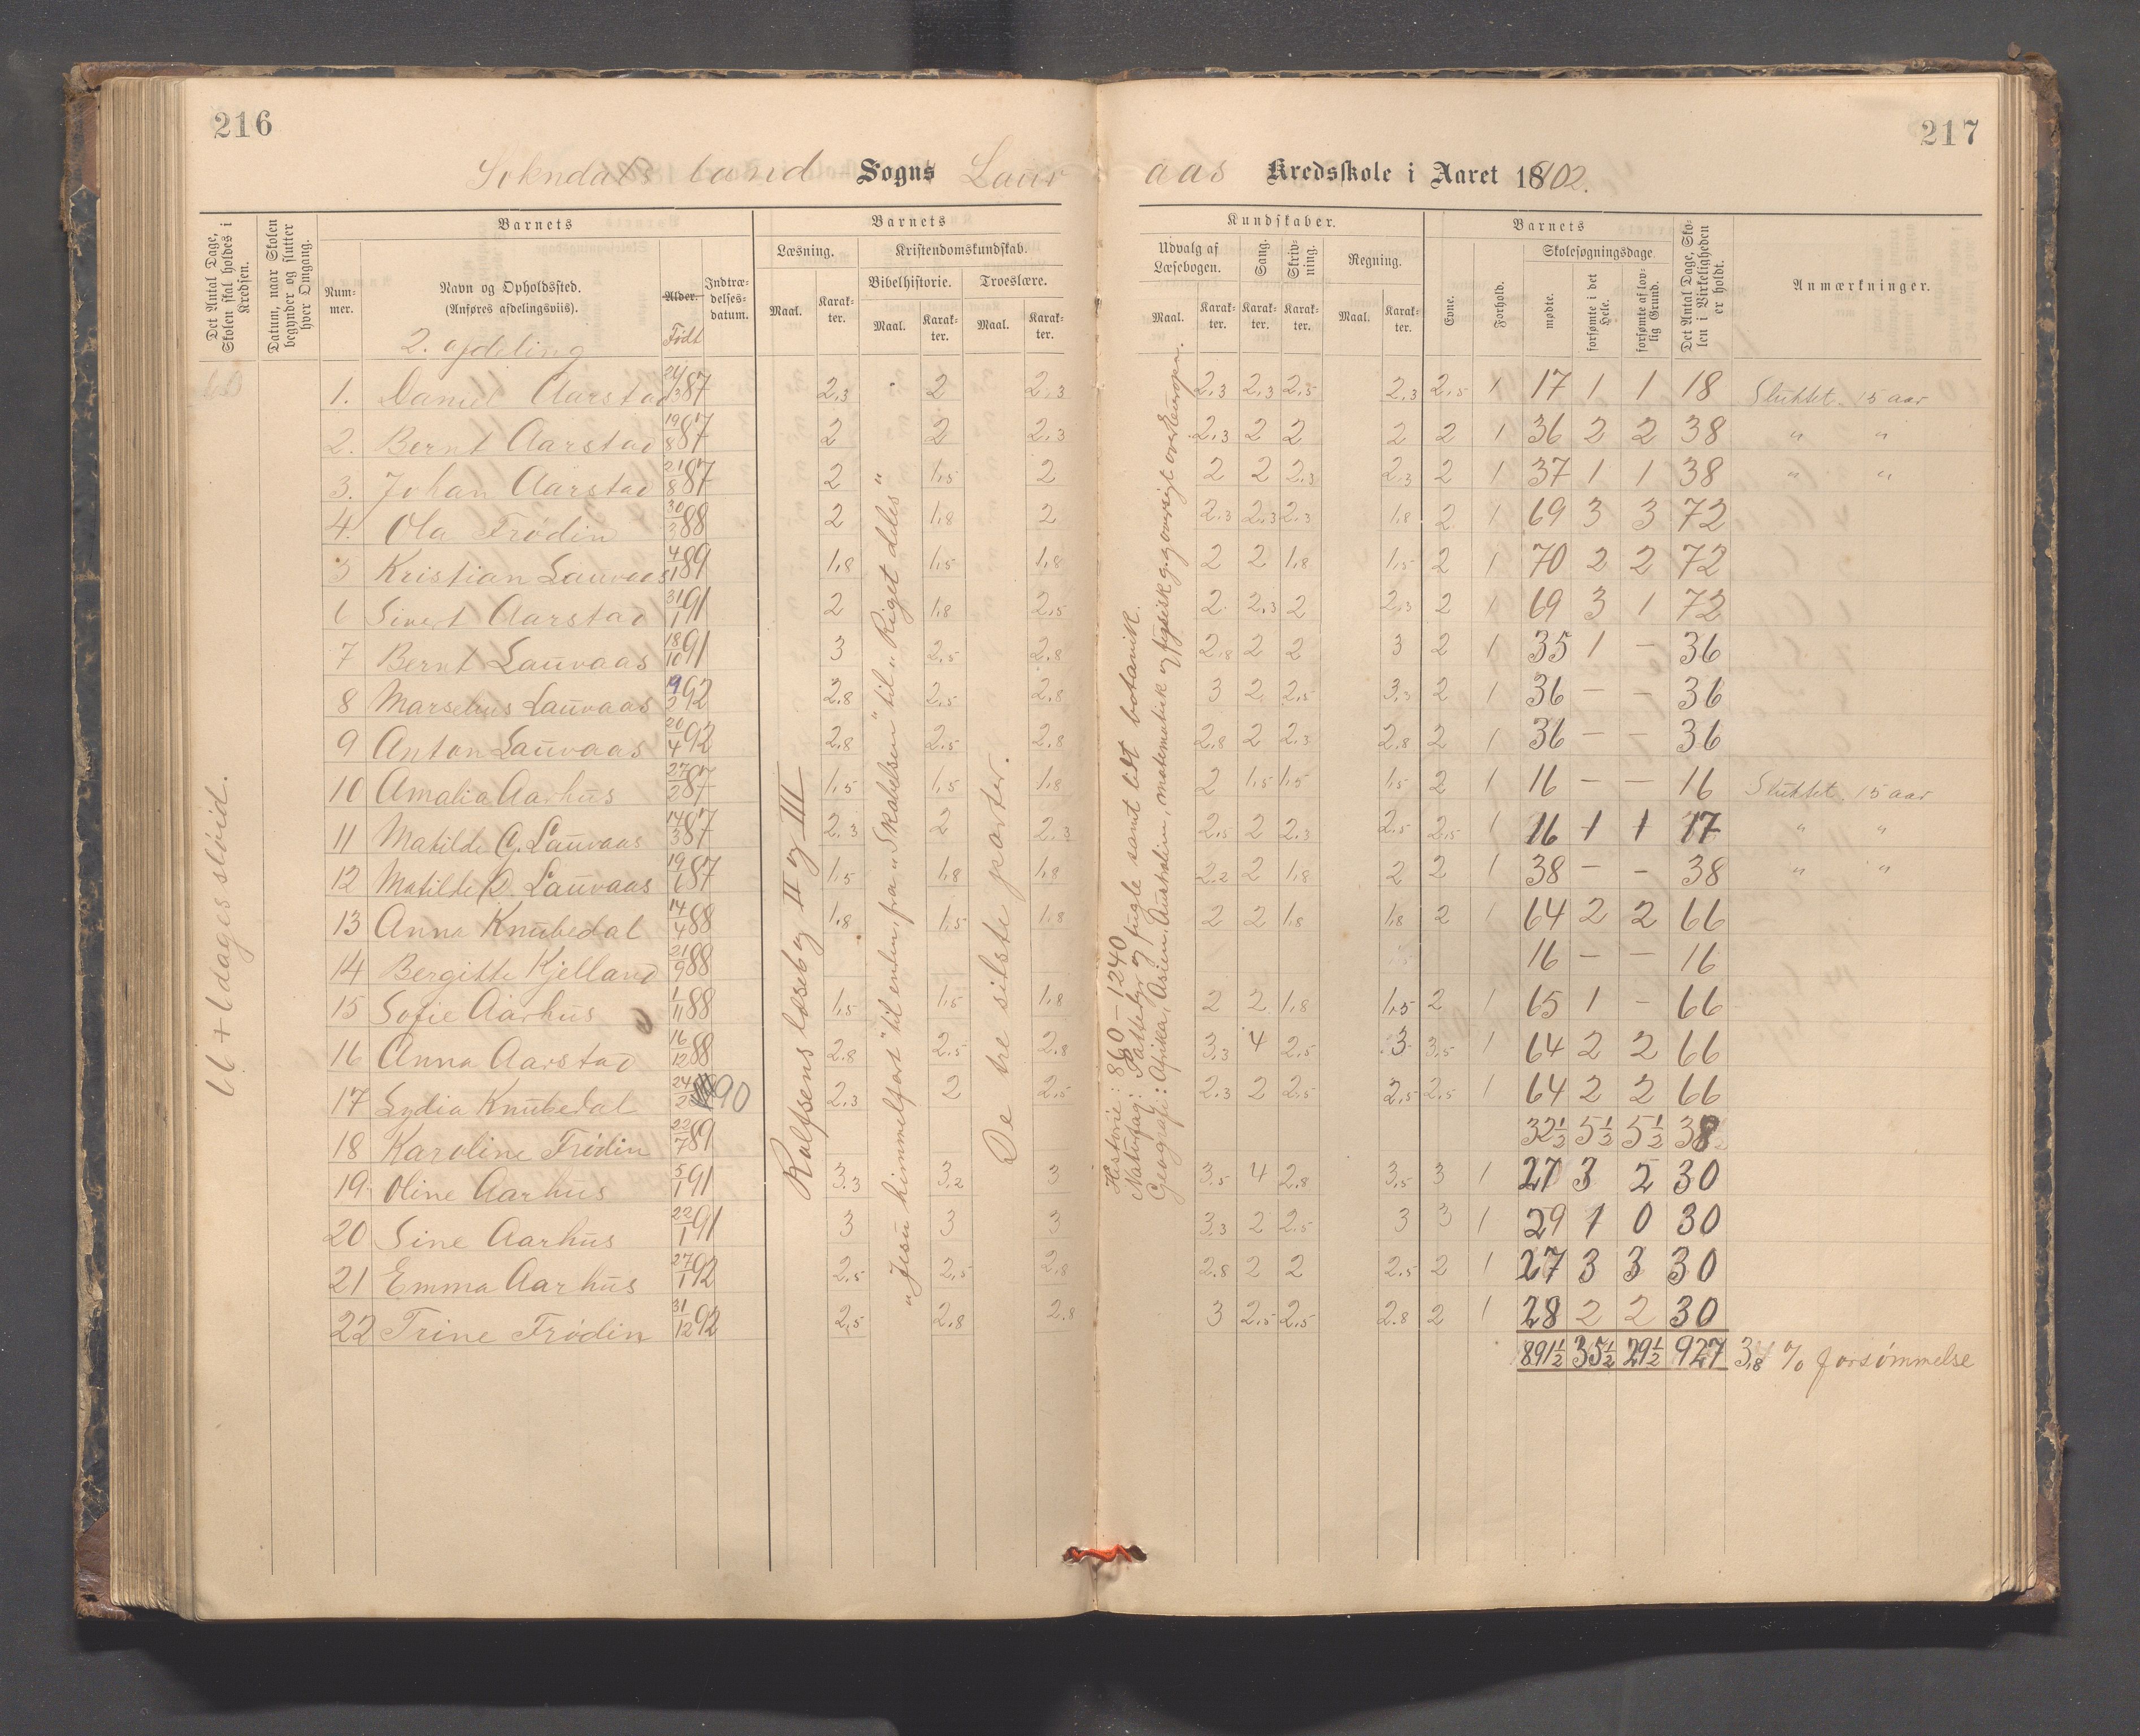 216
217
Sokndals land Sogns Laur
aas Kredsskole i Aaret 18 02.
Det Antal Dage, Skolen skal holdes i Kredsen.
Datum, naar Skolen begynder og slutter hver Omgang.
Barnets
Num-mer.
Navn og Opholdssted.
(Anføres afdelingsviis).
2. afdeling
Alder.
Født
Indtræ-delses-datum.
Barnets
Læsning.
Kristendomskundskab.
Bibelhistorie.
Troeslære.
Maal. Karak-ter. Maal. Karak-ter. Maal. Karak-ter.
Kundskaber.
Udvalg af Læsebogen.
Sang.
Skriv-ning.
Regning.
Maal. Karak-ter. Karak-ter. Karak-ter. Maal. Karak-ter.
Barnets
Evne.
Forhold.
Skolesøgningsdage
mødte.
forsømte i det Hele.
forsømte af lov-lig Grund.
Det Antal Dage, Sko-len i Virkeligheden er holdt.
Anmærkninger.
66 + 6 dages sløid.
Rolfsens læsebog II og III
"Jesu himmelfart" til enden, fra "Skabelsen" til "Riget deles"
De tre sidste parter.
Historie: 860–1240
Naturfag: Pattedyr og fugle samt lidt botanik.
Geografi: Afrika, Asien, Australien, matematisk og fysisk g. oversigt over Europa.
1. Daniel Aarstad 24/3 87 2,3 2 2,3 2,3 2,3 2,5 2,3 2,5 1 17 1 1 18 Sluttet. 15 aar
2. Bernt Aarstad 19/8 87 2 2 2,3 2,3 2 2 2 2 1 36 2 2 38 " "
3. Johan Aarstad 21/8 87 2 1,5 2 2 2 2,3 2,3 2 1 37 1 1 38 " "
4. Ola Frødin 30/3 88 2 1,8 2 2,3 2,3 2,3 1,8 2 1 69 3 3 72
5 Kristian Lauvaas 4/1 89 1,8 1,5 1,8 2 2 1,8 1,5 2 1 70 2 2 72
6 Sivert Aarstad 31/1 91 2 1,8 2,5 2 2,3 2 2,3 2 1 69 3 1 72
7 Bernt Lauvaas 18/10 91 3 2,5 2,8 2,8 2 2 3 2 1 35 1 – 36
8 Marselius Lauvaas 9/2 92 2,8 2,5 2,8 3 2 2,5 3,3 2 1 36 – – 36
9 Anton Lauvaas 20/4 92 2,8 2,5 2,8 2,8 2 2,3 2,8 2 1 36 – – 36
10 Amalia Aarhus 27/2 87 1,5 1,5 1,8 2 1,5 1,5 1,5 2 1 16 – – 16 Sluttet. 15 aar
11 Matilde G. Lauvaas 14/3 87 2,3 2 2,3 2,5 2 2,3 2,5 2,5 1 16 1 1 17 " "
12 Matilde D. Lauvaas 19/6 87 1,5 1,8 1,8 2,2 2 1,8 2 2 1 38 – – 38 " "
13 Anna Knubedal 14/4 88 1,8 1,5 1,8 2 2 1,8 1,8 2 1 64 2 2 66
14 Bergitte Kjelland 21/9 88 16 – – 16
15 Sofie Aarhus 1/11 88 1,5 1,5 1,8 2 2 1,8 1,5 2 1 65 1 – 66
16 Anna Aarstad 16/12 88 2,8 2,5 2,8 3,3 4 2,5 3 3,5 1 64 2 2 66
17 Lydia Knubedal 24/2 90 2,3 2 2,5 2,3 2 2,5 2,5 2,5 1 64 2 2 66
18 Karoline Frødin 22/7 89 32½ 5½ 5½ 38
19 Oline Aarhus 5/1 91 3,3 3,2 3 3,5 4 2,8 3,5 3 1 27 3 2 30
20 Sine Aarhus 22/1 91 3 3 3 3,3 2 2,5 3 3 1 29 1 0 30
21 Emma Aarhus 27/1 92 2,5 2,5 2,8 2,8 2 2 2,5 2 1 27 3 3 30
22 Trine Frødin 31/12 92 2,5 2,8 2,8 3 2,5 2,5 2,8 2 1 28 2 2 30
891½ 35½ 29½ 927 3,8 % forsømmelse